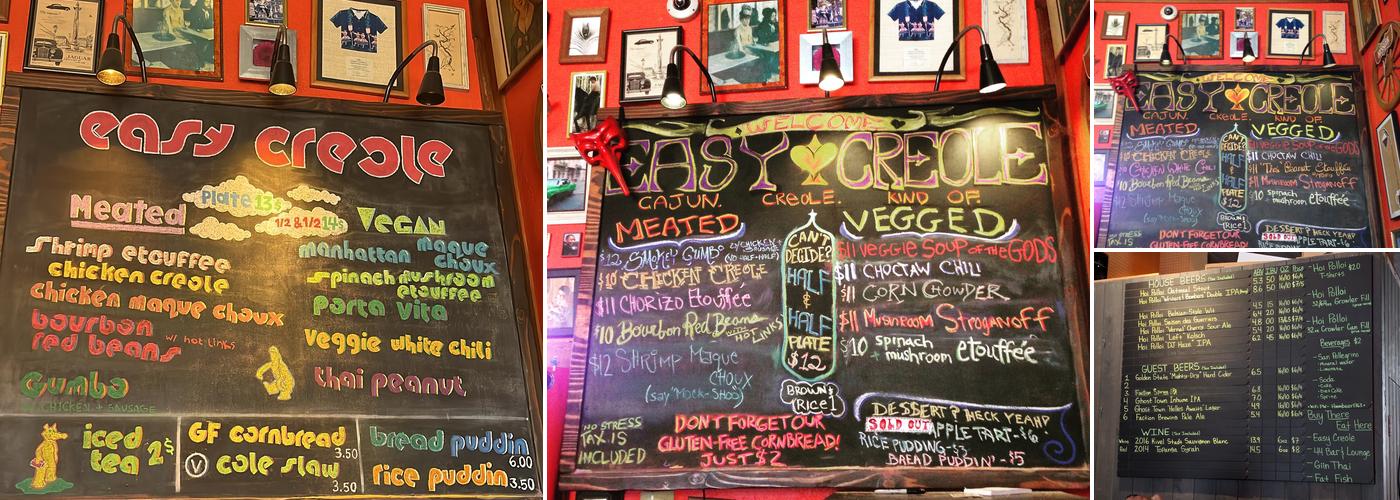 easy creole
Plate 13$
1/2 & 1/2 14$
Meated
VEGAN
shrimp etouffee
chicken creole
chicken maque choux
bourbon
red beans w/ hot links
Gumbo
W/ CHICKEN + SAUSAGE
manhattan maque
choux
spinach mushroom
etouffee
porta vita
Veggie white chili
thai peanut
iced
tea 2
GF cornbread
3.50
V cole slaw
3.50
bread puddin
6.00
rice puddin 3.50
WELCOME
EASY CREOLE
CAJUN. CREOLE. KIND OF.
MEATED
$12 SMOKEY GUMBO w/CHICKEN + SAUSAGE (NO HALF+HALF)
$10 CHICKEN CREOLE
$11 CHORIZO Etouffée
$10 Bourbon Red Beans WITH HOT LINKS
$12 SHRIMP Maque
CHOUX
(say "Mock-Shoo")
CAN'T
DECIDE?
HALF
&
HALF
PLATE
$12
BROWN
RICE!
VEGGED
$11 veggie Soup of the GODS
$11 CHOCTAW CHILI
$11 CORN CHOWDER
$11 MUSHROOM Stroganoff
$10 spinach
+ mushroom etouffée
NO STRESS
TAX IS
INCLUDED
DON'T FORGET OUR
GLUTEN-FREE CORNBREAD!
JUST $2
DESSERT? HECK YEAH!
SOLD OUT APPLE TART-$6
RICE PUDDING-$3
BREAD PUDDIN'-$5
WELCOME
EASY CREOLE
CAJUN. CREOLE. KIND OF.
MEATED
CHICKEN CREOLE
CAN'T
DECIDE?
HALF
&
HALF
PLATE
$12
BROWN
RICE!
VEGGED
$11 veggie Soup of the GODS
$11 CHOCTAW CHILI
$11 Mushroom Stroganoff
$10 spinach
+ mushroom etouffée
(say "Mock-Shoo")
NO STRESS
TAX IS
DON'T FORGET OUR
GLUTEN-FREE CORNBREAD!
DESSERT? HECK YEAH!
SOLD OUT APPLE TART-$6
HOUSE BEERS
ABV IBU OZ Price
Hoi Polloi Oatmeal Stout
Hoi Polloi Belgian Style Wit
Hoi Polloi Saison des Guerriers
Hoi Polloi "Left" Kolsch
Hoi Polloi "DJ Haze" IPA
GUEST BEERS
Golden State "Mighty Dry" Hard Cider
Ghost Town Inhume IPA
Ghost Town Helles Awaits Lager
Faction Browns Pale Ale
WINE
2016 Kivel Stadt Sauvignon Blanc
2014 Topanda Syrah
- Hoi Polloi $20
T-shirts
- Hoi Polloi
Growler Fill
- Hoi Polloi
Growler Can Fill
Beverages $2
- San Pellegrino
- Soda
Buy There
Eat Here
- Easy Creole
- Giin Thai
- Fat Fish